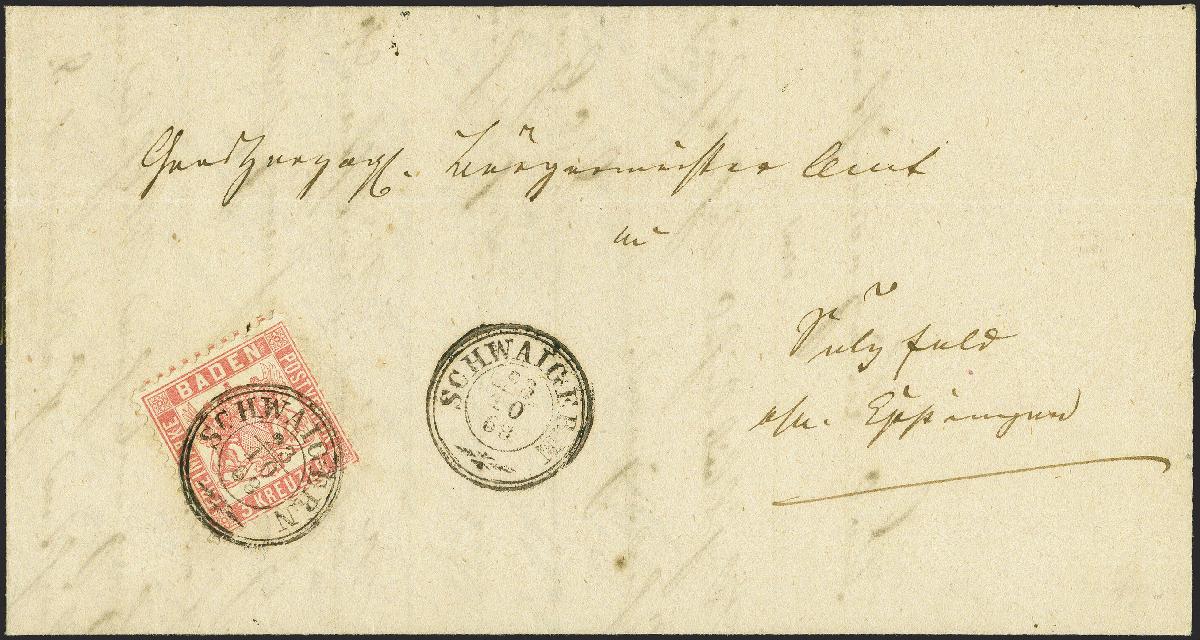 Großherzogl. Bürgermeister Amt
in
Sulzfeld
Eppingen
BADEN
POSTV
3 KREUZ
SCHWAIGERN
23
10
68
SCHWAIGERN
23
10
68